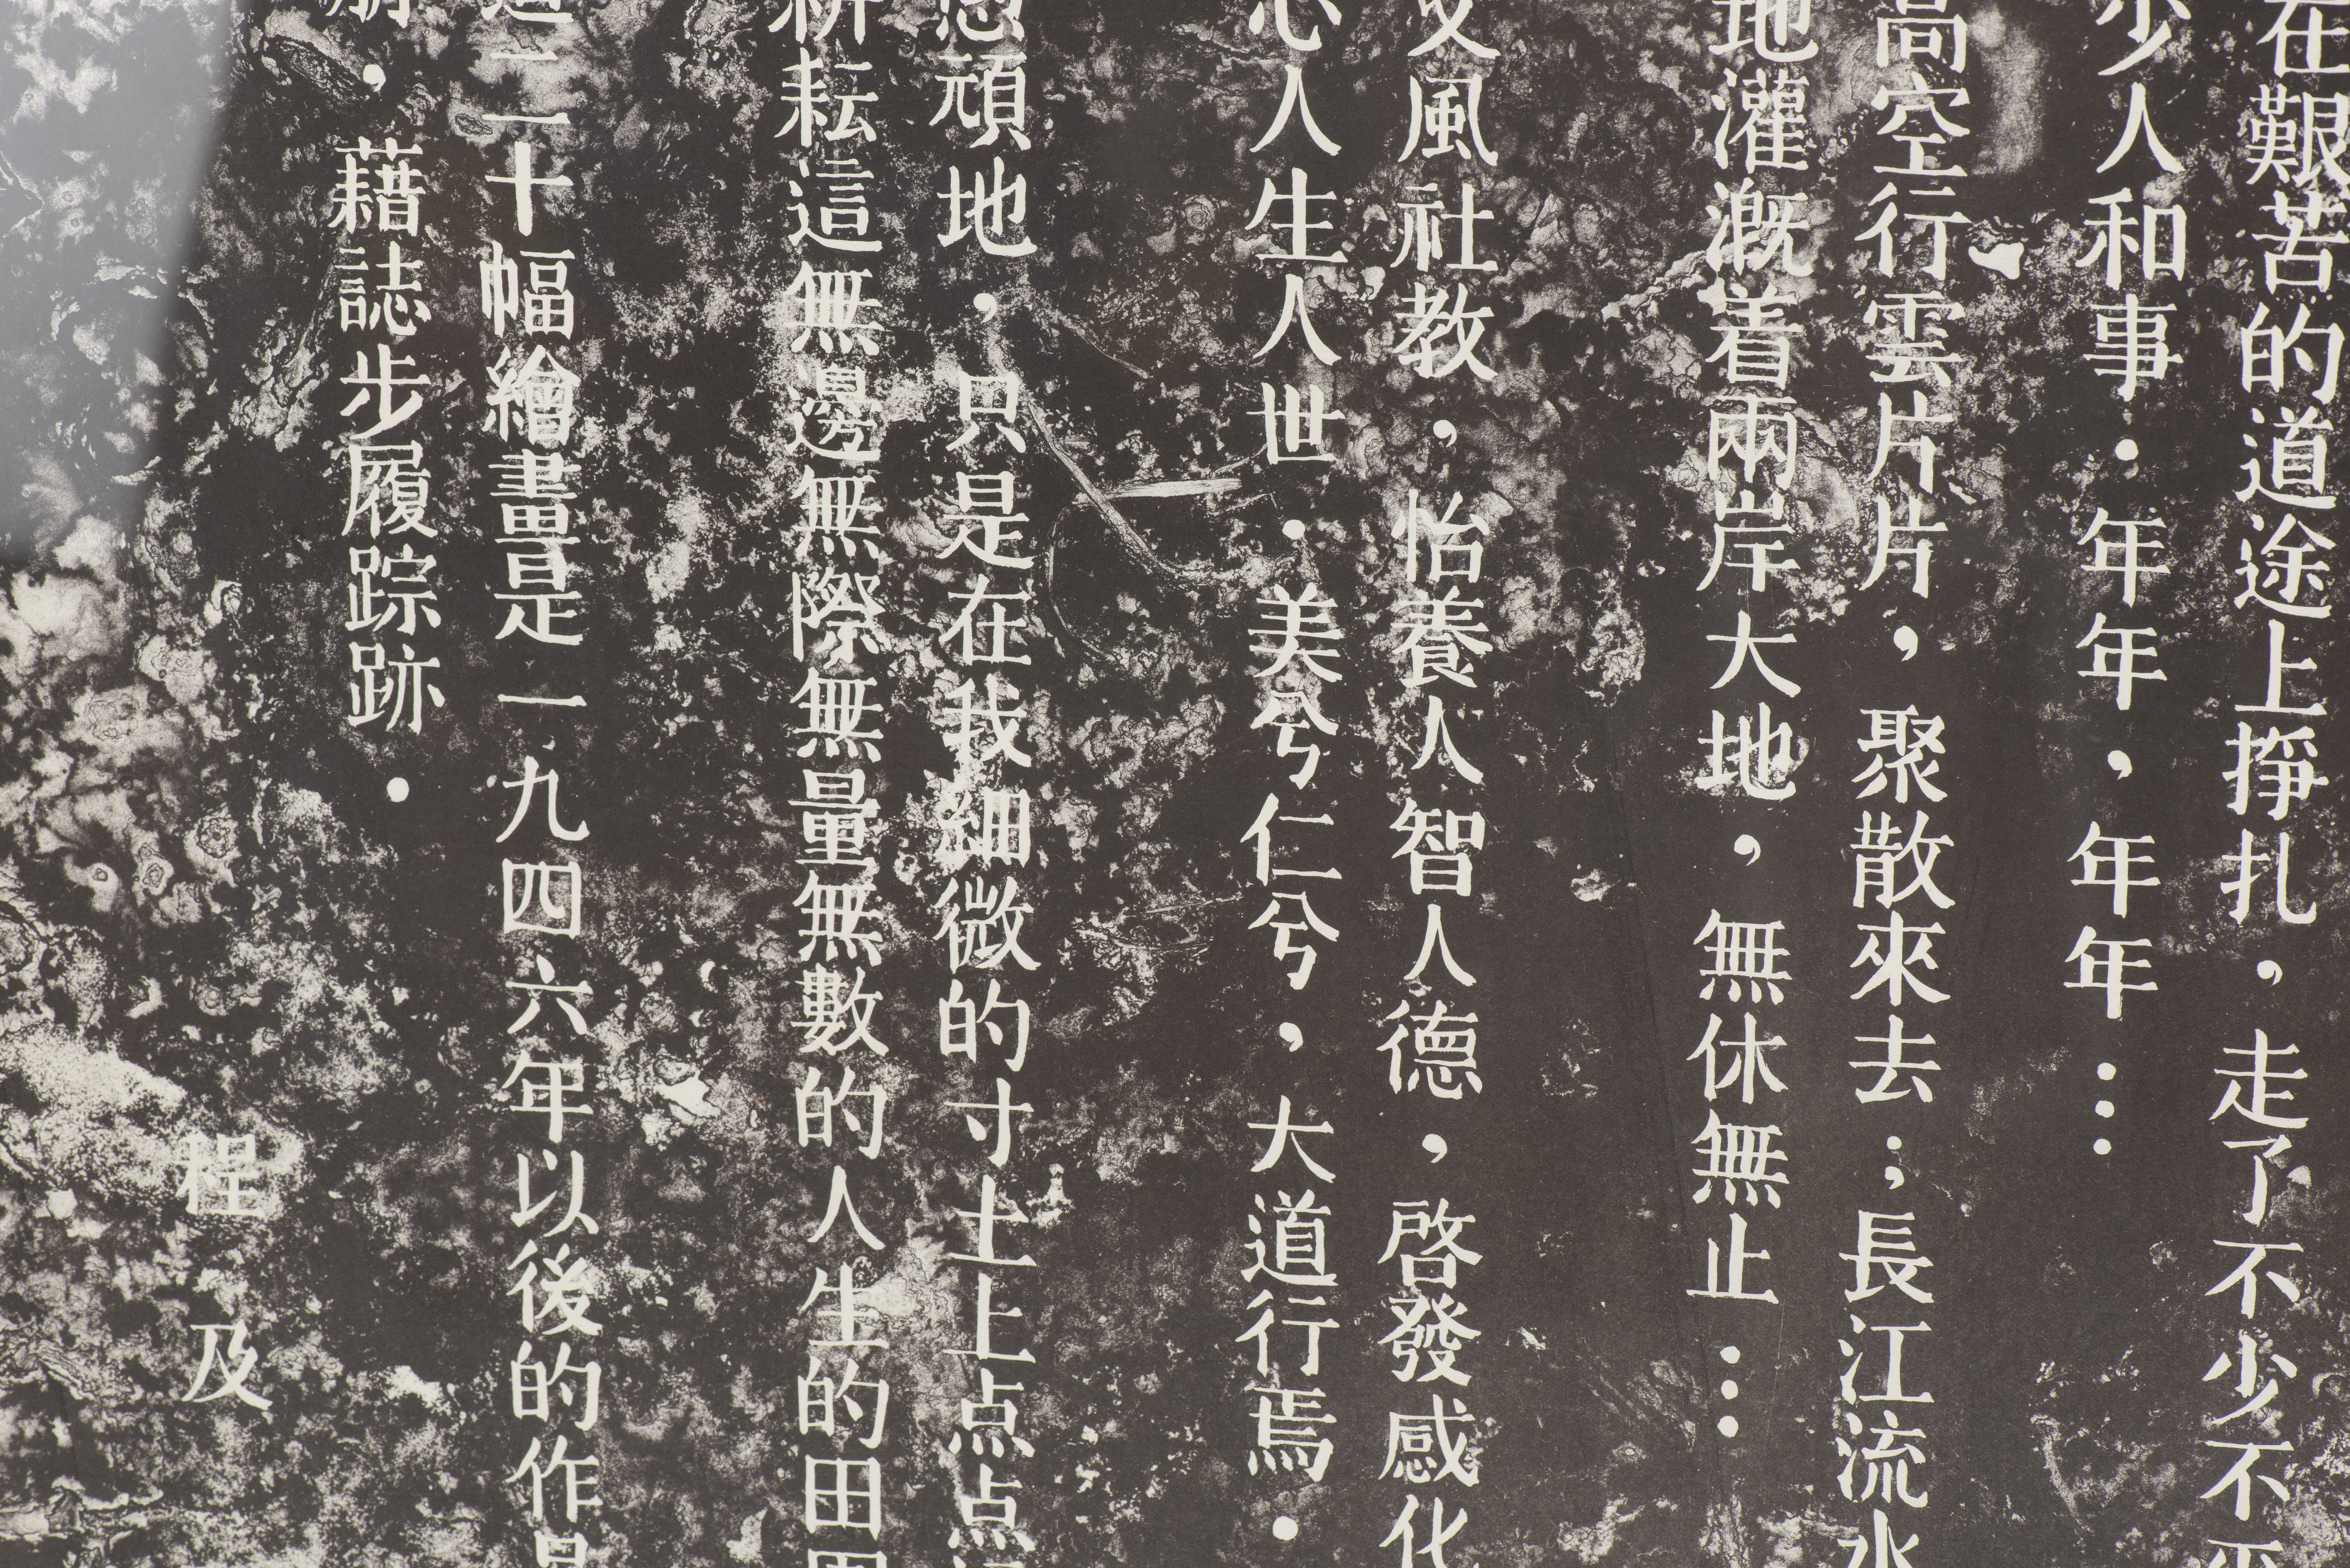 在艱苦的道途上掙扎，走了不少不
少人和事．年年，年年…
高空行雲片片，聚散來去；長江流水
地灌溉着兩岸大地，無休無止…
文風社教，怡養人智人德，啓發感化
心人生人世．美兮仁兮，大道行焉．
頑地，只是在我細微的寸土上点点
耕耘這無邊無際無量無數的人生的田
二十幅繪畫是一九四六年以後的作品
，藉誌步履踪跡．
程及